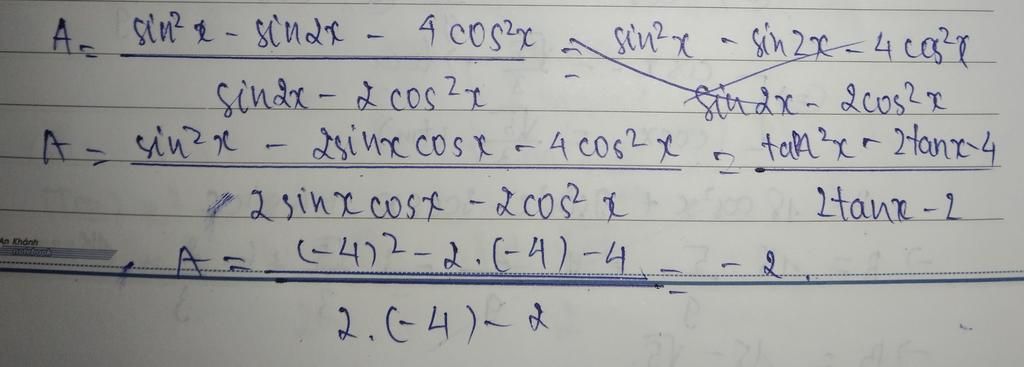 A = (sin²x - sin2x - 4cos²x)/(sin2x - 2cos²x) = (sin²x - sin2x - 4cos²x)/(sin2x - 2cos²x)
A = (sin²x - 2sinxcosx - 4cos²x)/(2sinxcosx - 2cos²x) = (tan²x - 2tanx-4)/(2tanx - 2)
An Khánh
notebook
A = ((-4)² - 2.(-4) - 4)/(2.(-4) - 2) = -2.